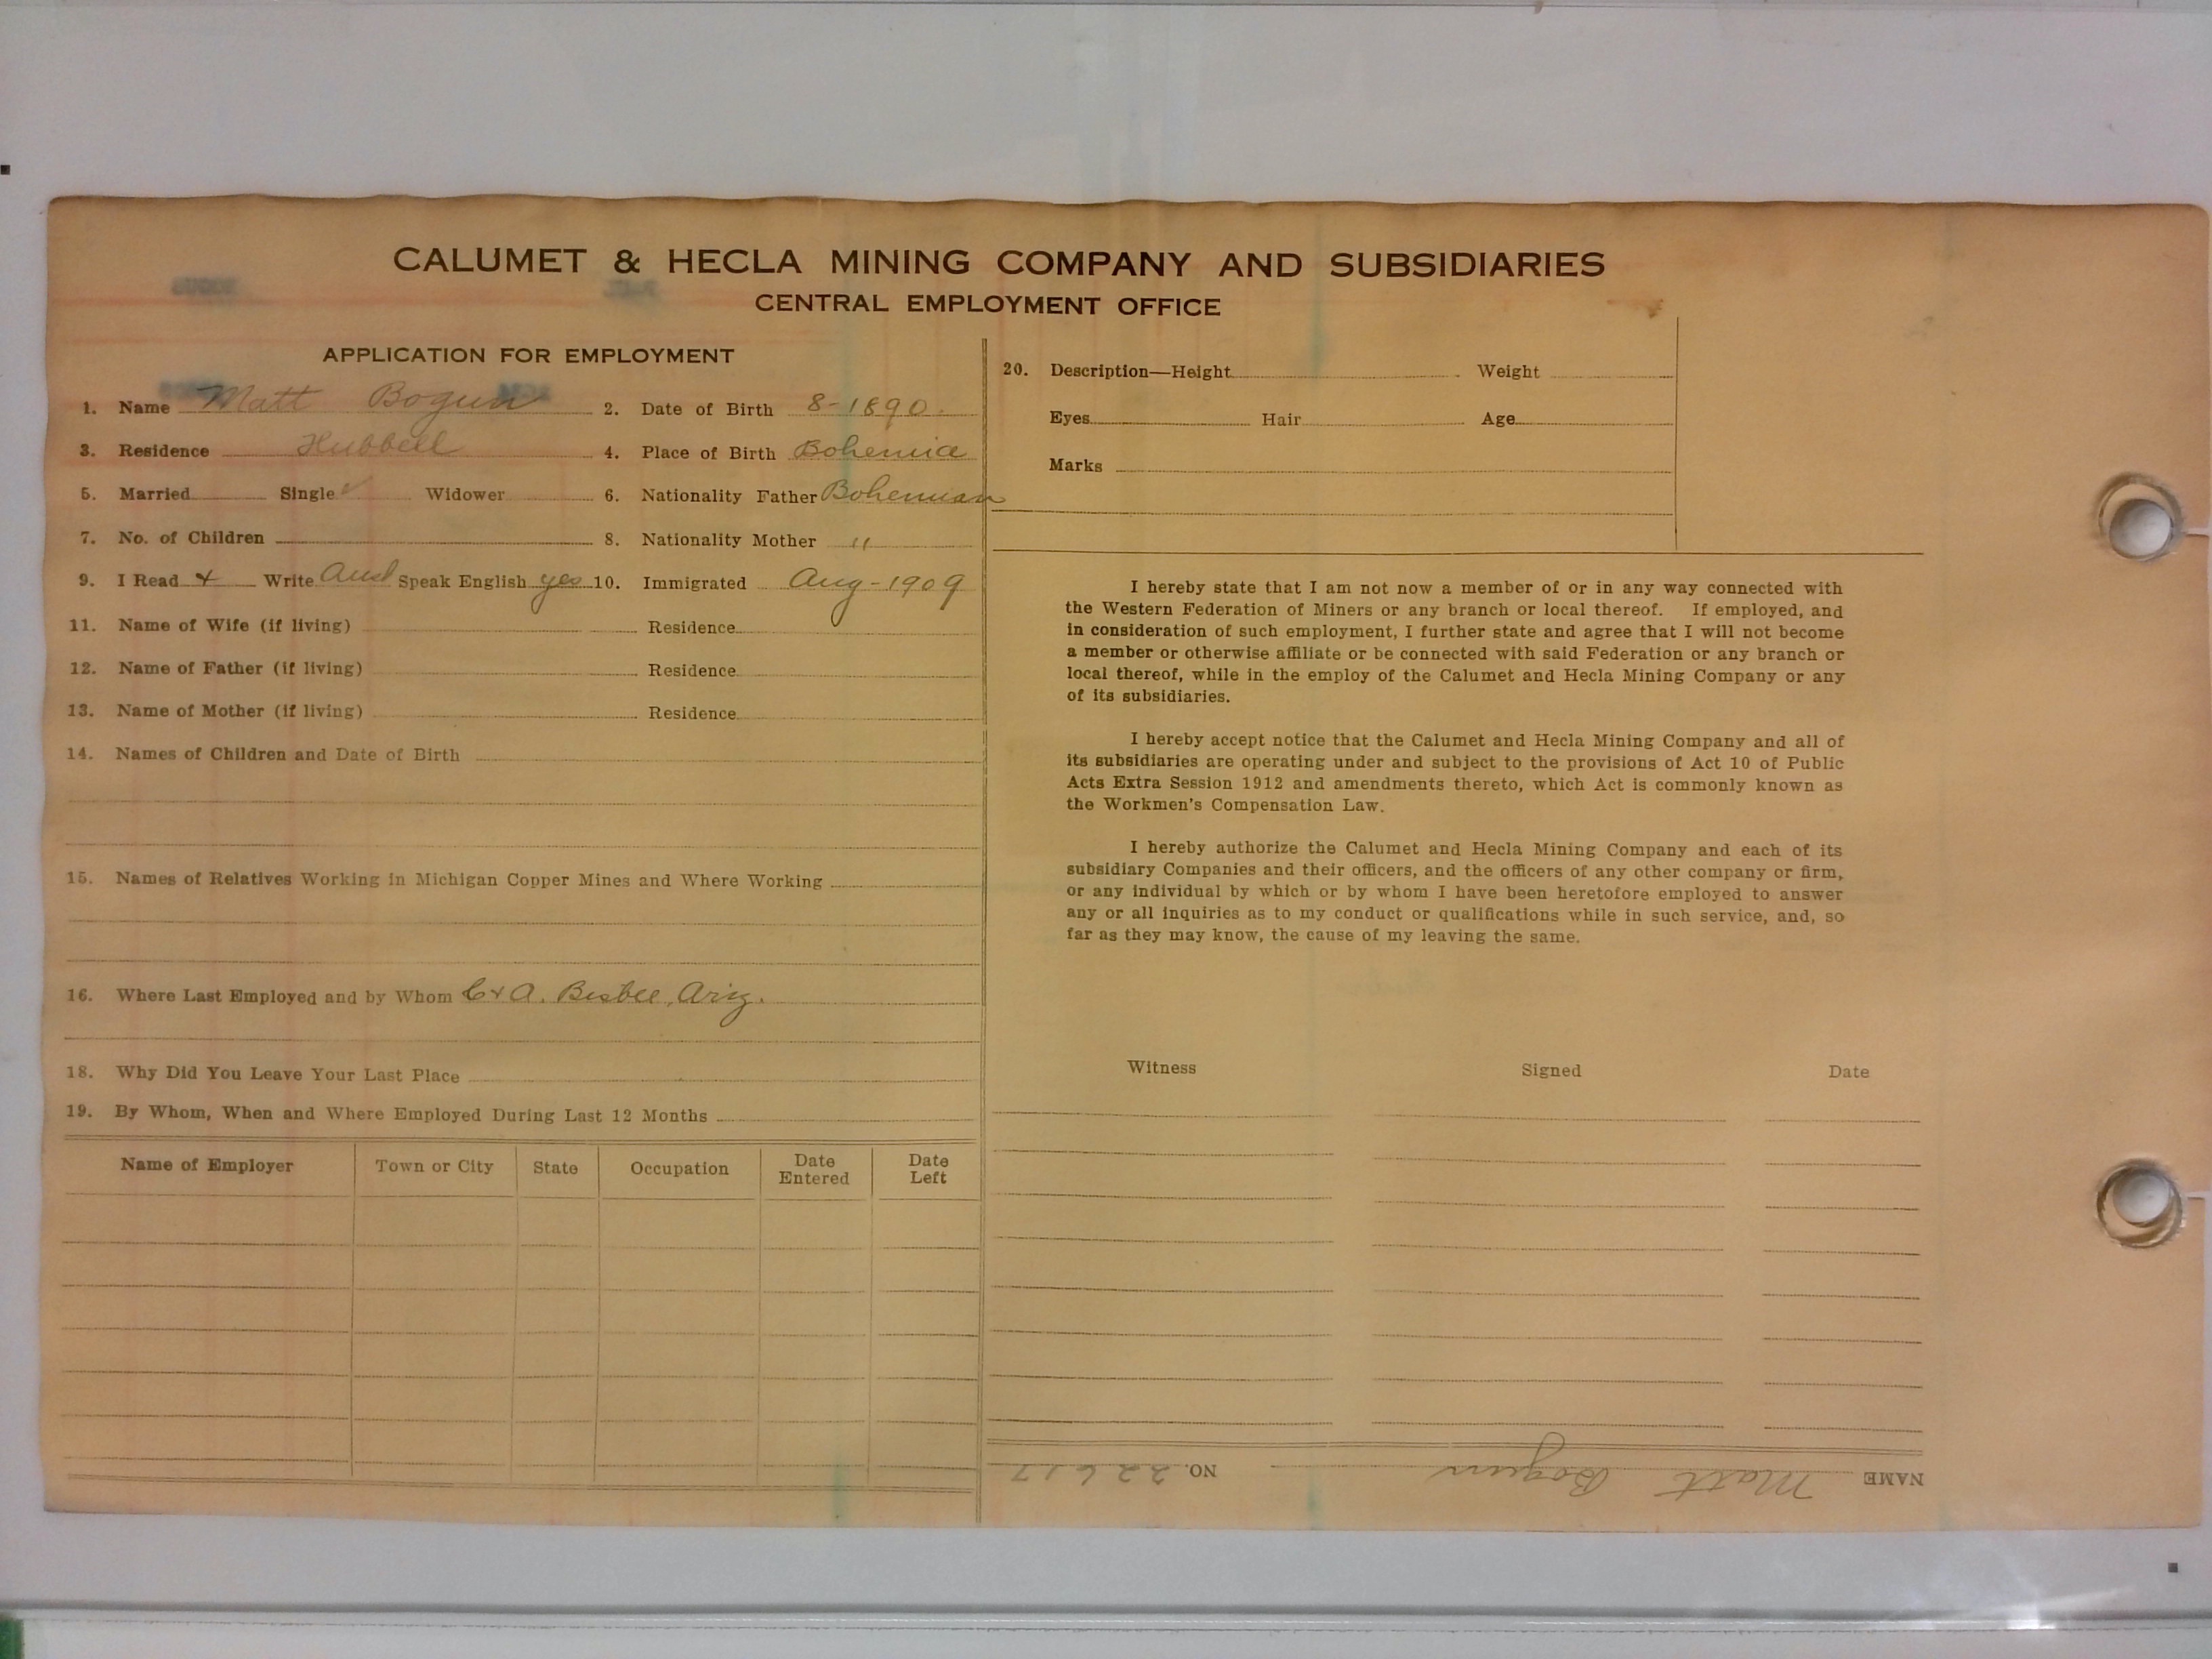 CALUMET & HECLA MINING COMPANY AND SUBSIDIARIES
CENTRAL EMPLOYMENT OFFICE
APPLICATION FOR EMPLOYMENT
1. Name Matt Bogun 2. Date of Birth 8-1890.
3. Residence Hubbell 4. Place of Birth Bohemia
5. Married Single ✓ Widower 6. Nationality Father Bohemian
7. No. of Children 8. Nationality Mother "
9. I Read + Write Aust Speak English yes 10. Immigrated Aug-1909
11. Name of Wife (if living) Residence
12. Name of Father (if living) Residence
13. Name of Mother (if living) Residence
14. Names of Children and Date of Birth
15. Names of Relatives Working in Michigan Copper Mines and Where Working
16. Where Last Employed and by Whom C+A. Bisbee, Ariz.
18. Why Did You Leave Your Last Place
19. By Whom, When and Where Employed During Last 12 Months
Name of Employer Town or City State Occupation Date Entered Date Left
20. Description—Height Weight
Eyes Hair Age
Marks
I hereby state that I am not now a member of or in any way connected with
the Western Federation of Miners or any branch or local thereof. If employed, and
in consideration of such employment, I further state and agree that I will not become
a member or otherwise affiliate or be connected with said Federation or any branch or
local thereof, while in the employ of the Calumet and Hecla Mining Company or any
of its subsidiaries.
I hereby accept notice that the Calumet and Hecla Mining Company and all of
its subsidiaries are operating under and subject to the provisions of Act 10 of Public
Acts Extra Session 1912 and amendments thereto, which Act is commonly known as
the Workmen's Compensation Law.
I hereby authorize the Calumet and Hecla Mining Company and each of its
subsidiary Companies and their officers, and the officers of any other company or firm,
or any individual by which or by whom I have been heretofore employed to answer
any or all inquiries as to my conduct or qualifications while in such service, and, so
far as they may know, the cause of my leaving the same.
Witness Signed Date
NAME Matt Bogun NO. 22617